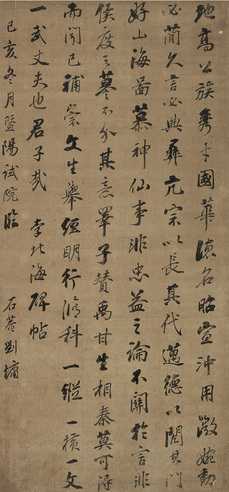 地高公族秀才國華德名昭宣沖用微婉動
必簡久言必典彝亢宗以長其代邁德以閎其門
好山海圖慕神仙事非忠益之論不關於言非
侯度之謩不介其意畢子贊禹甘生相秦莫可得
而聞已補崇文生舉經明行脩科一縱一橫一文
一武丈夫也君子哉 李北海碑帖
己亥冬月暨陽試院臨
石菴劉墉